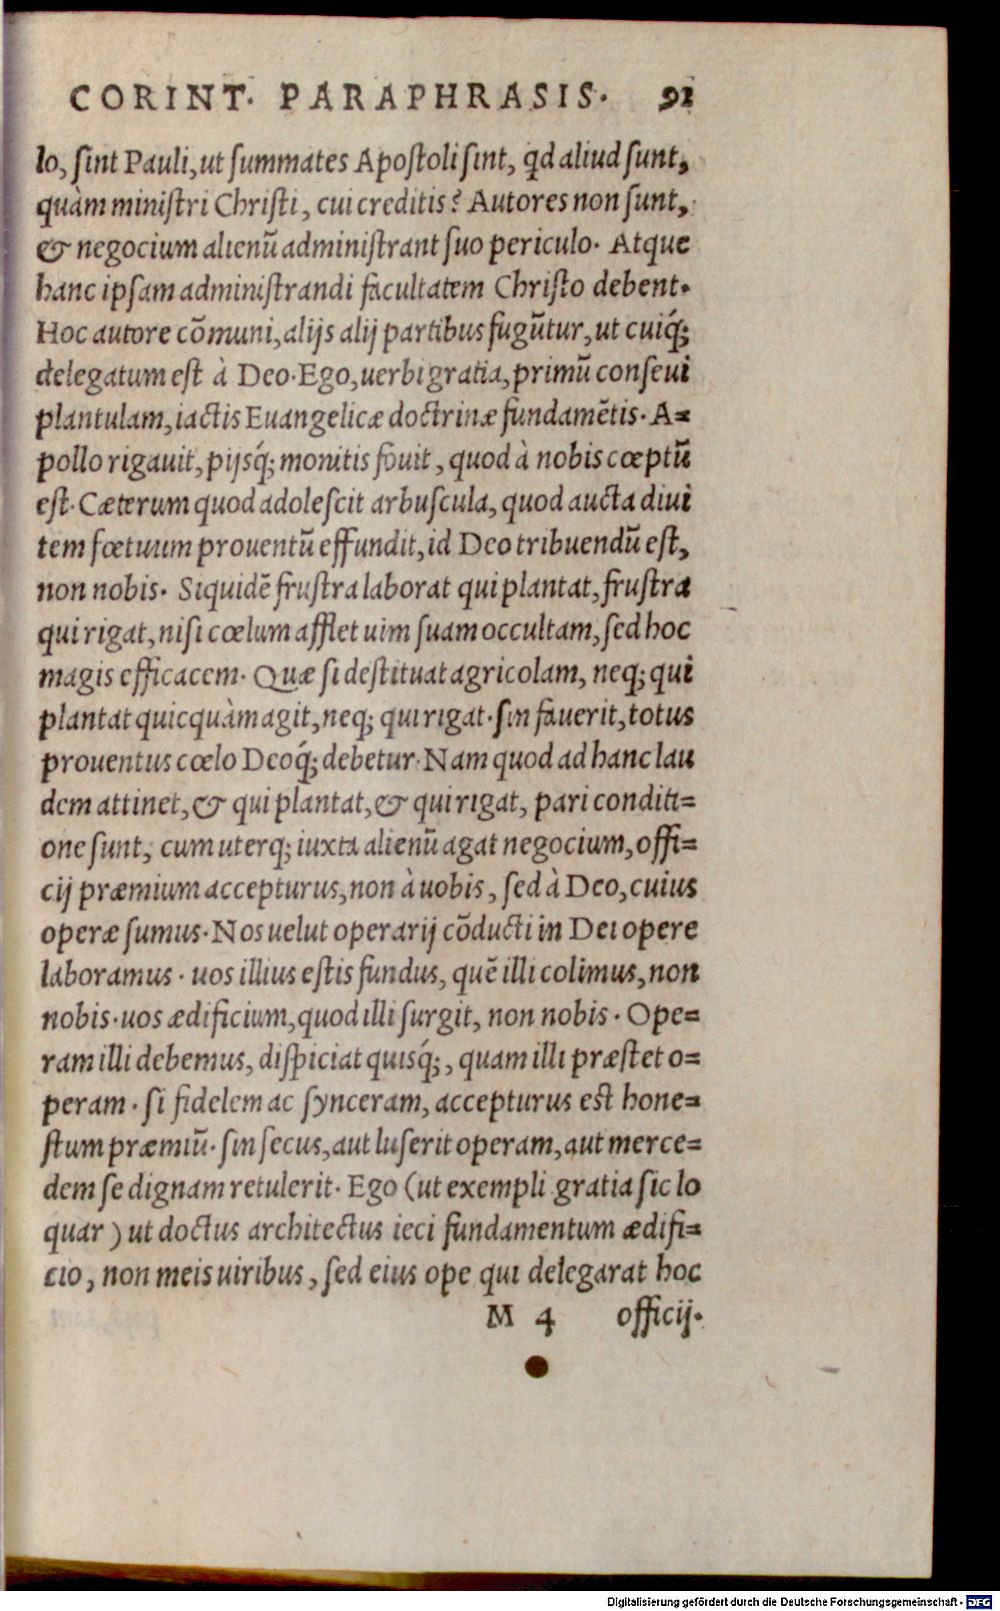 CORINT. PARAPHRASIS. 91
lo, ſint Pauli, ut ſummates Apoſtoli ſint, qd aliud ſunt,
quàm miniſtri Chriſti, cui creditis? Autores non ſunt,
& negocium alienũ adminiſtrant ſuo periculo. Atque
hanc ipſam adminiſtrandi facultatem Chriſto debent.
Hoc autore cõmuni, alijs alij partibus fugũtur, ut cuiq́;
delegatum eſt à Deo. Ego, uerbi gratia, primũ conſeui
plantulam, iactis Euangelicæ doctrinæ fundamẽtis. A=
pollo rigauit, pijsq́; monitis fouit, quod à nobis cœptũ
eſt. Cæterum quod adoleſcit arbuſcula, quod aucta diui
tem fœtuum prouentũ effundit, id Deo tribuendũ eſt,
non nobis. Siquidẽ fruſtra laborat qui plantat, fruſtra
qui rigat, niſi cœlum afflet uim ſuam occultam, ſed hoc
magis efficacem. Quæ ſi deſtituat agricolam, neq; qui
plantat quicquàm agit, neq; qui rigat. ſin fauerit, totus
prouentus cœlo Deoq́; debetur. Nam quod ad hanc lau
dem attinet, & qui plantat, & qui rigat, pari conditi=
one ſunt, cum uterq; iuxta alienũ agat negocium, offi=
cij præmium accepturus, non à uobis, ſed à Deo, cuius
operæ ſumus. Nos uelut operarij cõducti in Dei opere
laboramus. uos illius eſtis fundus, quẽ illi colimus, non
nobis. uos ædificium, quod illi ſurgit, non nobis. Ope=
ram illi debemus, diſpiciat quiſq́;, quam illi præſtet o=
peram. ſi fidelem ac ſynceram, accepturus eſt hone=
ſtum præmiũ. ſin ſecus, aut luſerit operam, aut merce=
dem ſe dignam retulerit. Ego (ut exempli gratia ſic lo
quar) ut doctus architectus ieci fundamentum ædifi=
cio, non meis uiribus, ſed eius ope qui delegarat hoc
M 4 officij.
Digitalisierung gefördert durch die Deutsche Forschungsgemeinschaft - DFG